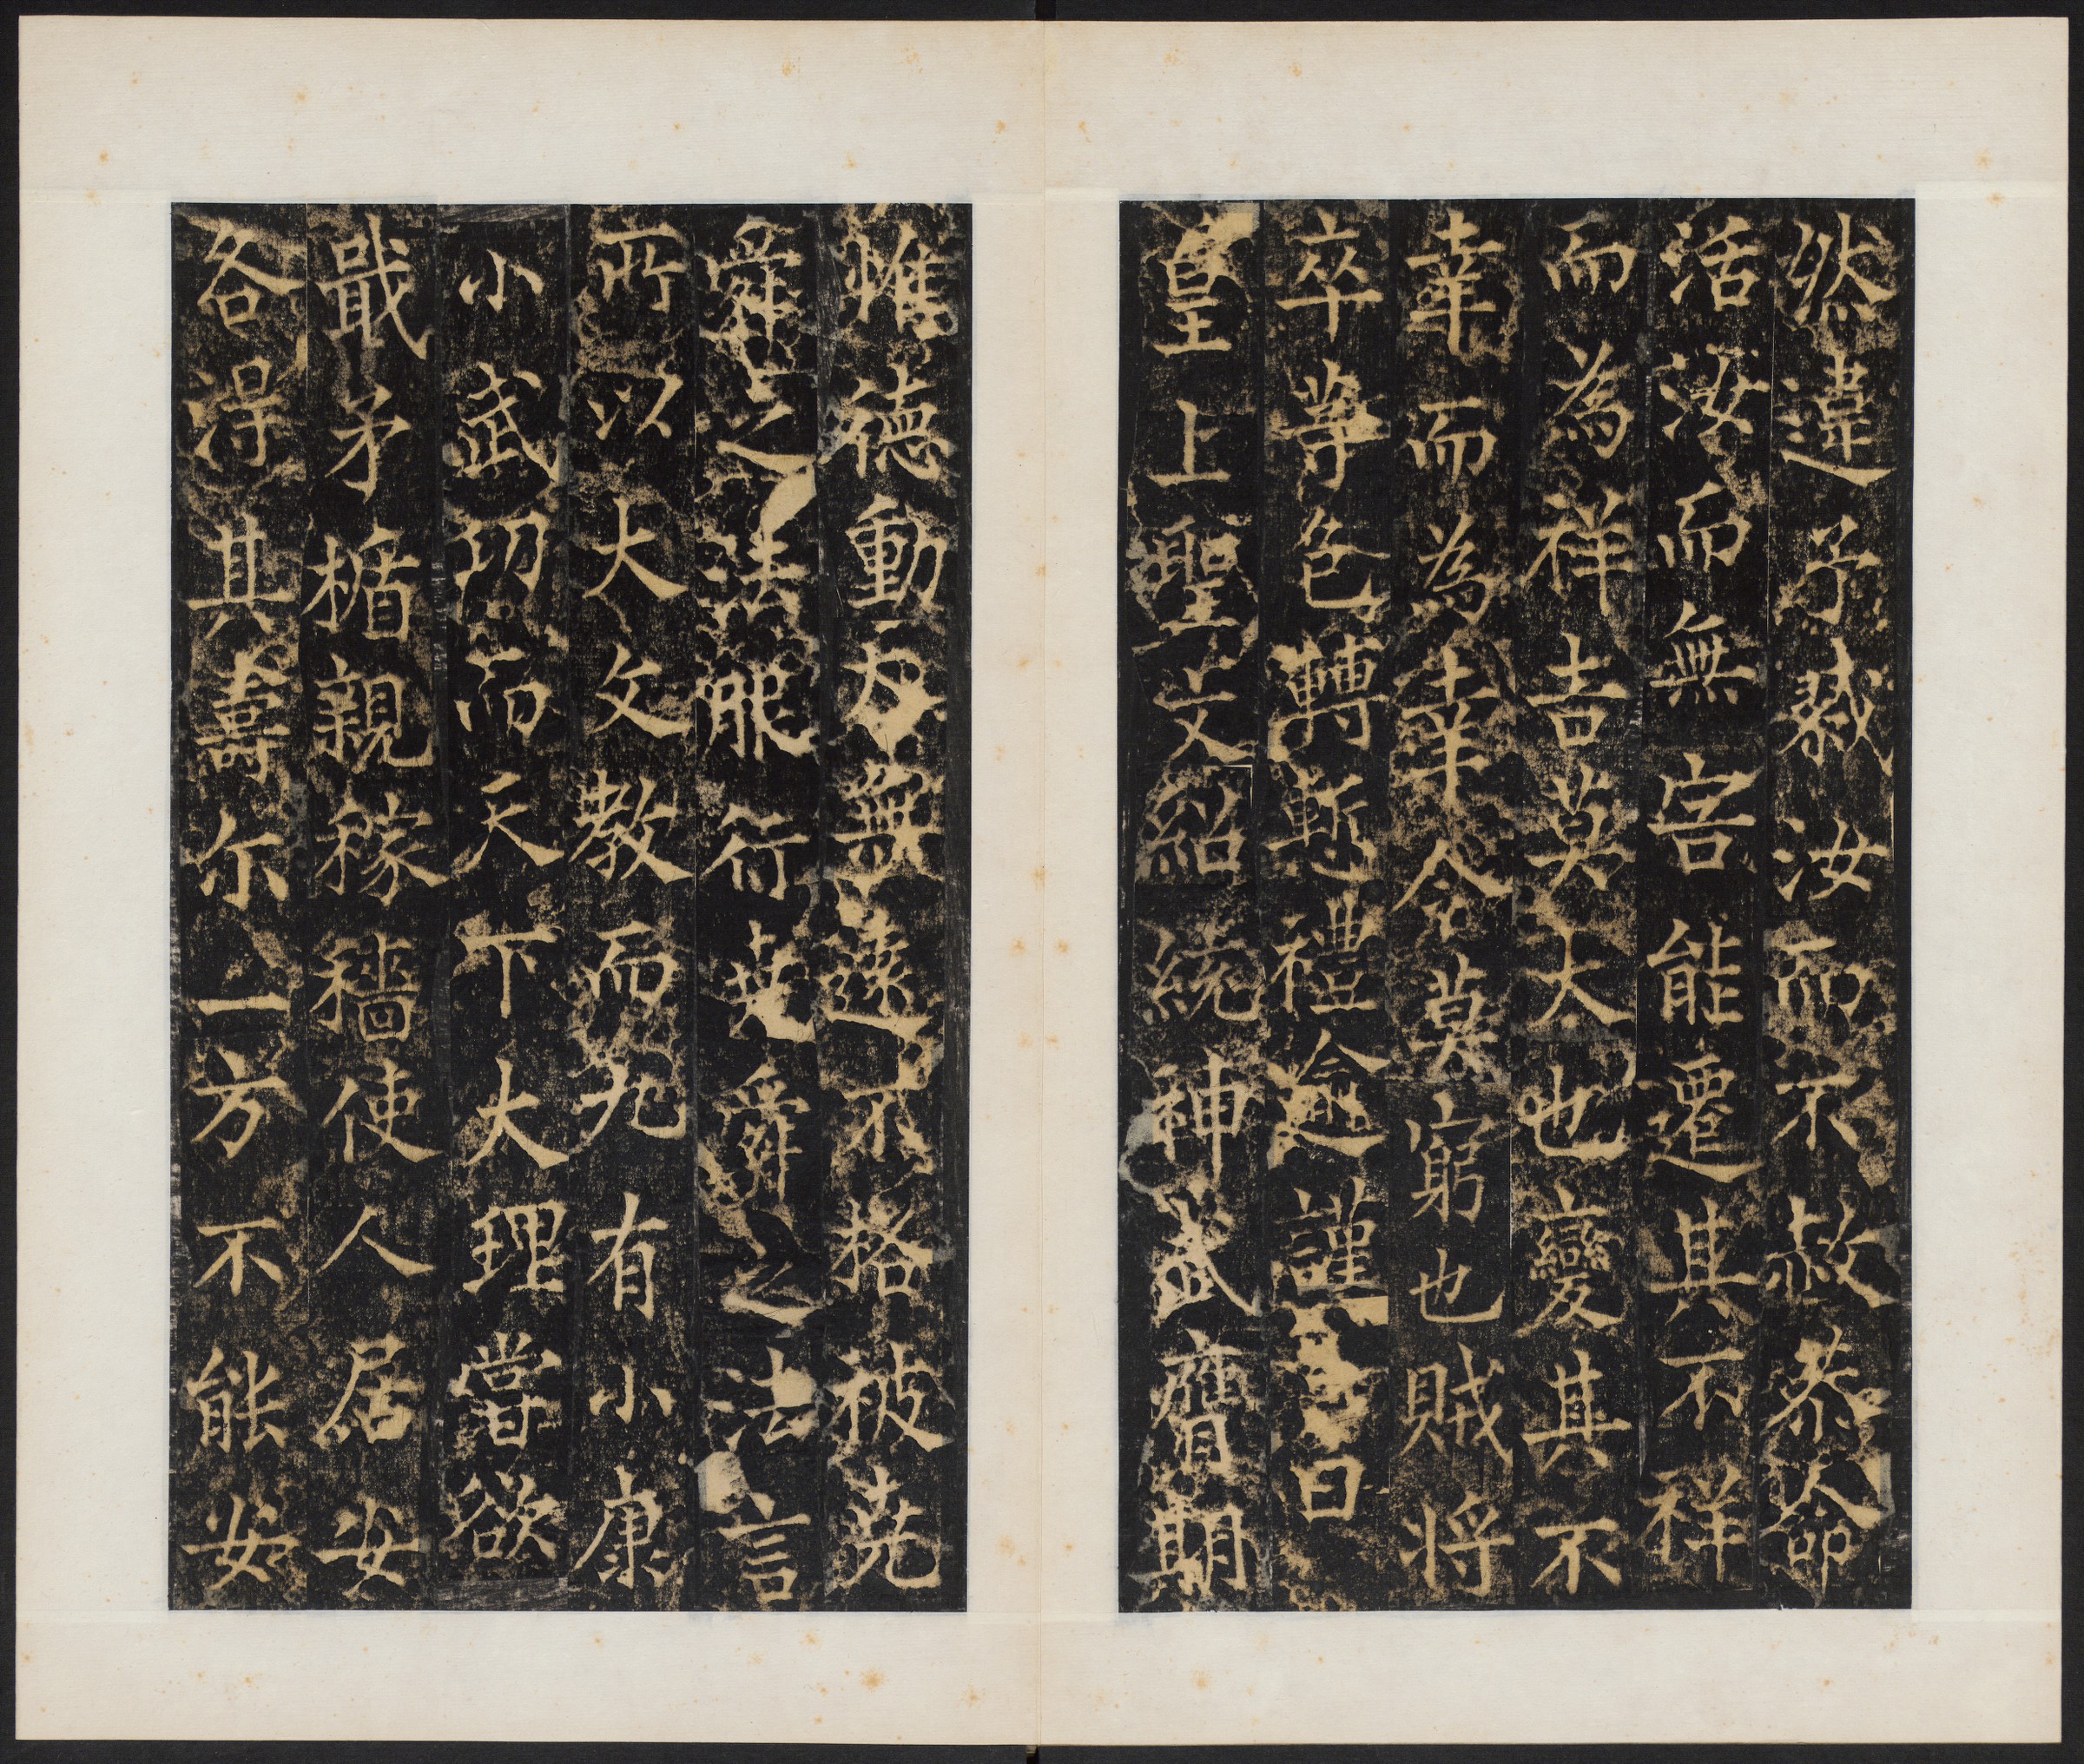 然違予戮汝而不赦恭命
活汝而無害能遷其不祥
而為祥吉莫大也變其不
幸而為幸令莫窮也賊將
卒等色轉慙禮逾謹曰
皇上聖文紹統神武膺期
惟德動天無遠不格被堯
舜之法能行堯舜之法言
所以大文教而九有小康
小武功而天下大理嘗欲
戢矛楯親稼穡使人居安
各得其壽尓一方不能安